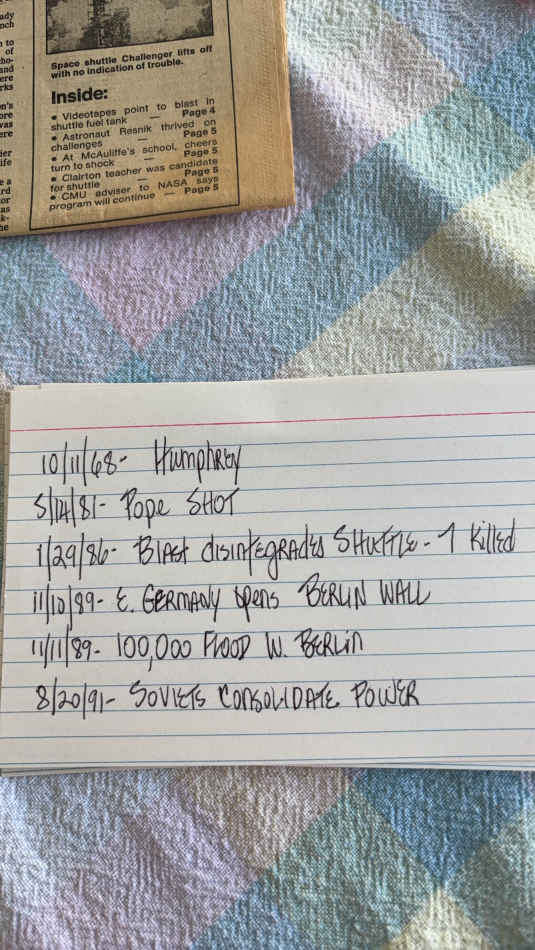 ady
nch
n to
of
cho-
and
ere
rks
on's
ore
was
ere
ier
ife
e a
rd
or
as
k-
he
Space shuttle Challenger lifts off
with no indication of trouble.
Inside:
• Videotapes point to blast in
shuttle fuel tank — Page 4
• Astronaut Resnik thrived on
challenges — Page 5
• At McAuliffe's school, cheers
turn to shock — Page 5
• Clairton teacher was candidate
for shuttle — Page 5
• CMU adviser to NASA says
program will continue — Page 5
10/11/68- Humphrey
5/14/81- Pope SHOT
1/29/86- Blast disintegrades SHUTTLE - 7 Killed
11/10/89- E. GERMANY opens BERLIN WALL
11/11/89- 100,000 FLOOD W. BERLin
8/20/91- SOVIETS CONSOLIDATE POWER